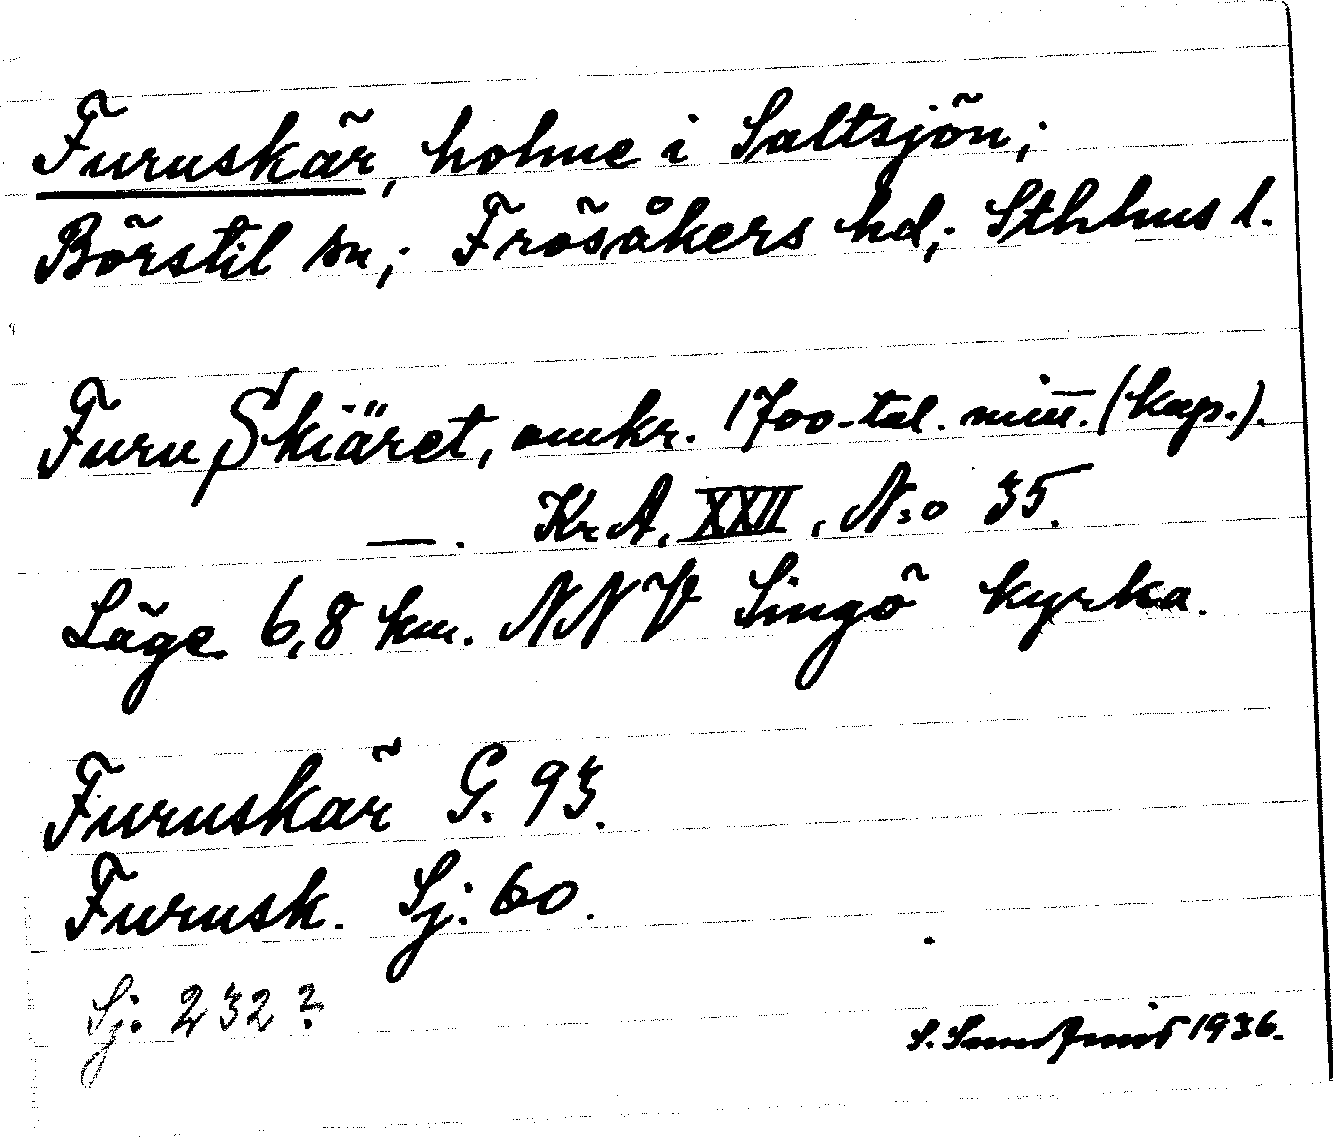 Furuskär, holme i Saltsjön;
Börstil sn; Frösåkers hd; Sthlms l.
Furu Skiäret, omkr. 1700-tal. mitt. (kop.).
—. Kr. A. XXII, N:o 35.
Läge 6,8 km. NNV Singö kyrka.
Furuskär G. 93.
Furusk. Sj: 60.
Sj: 232?
S. Sundqvist 1936.